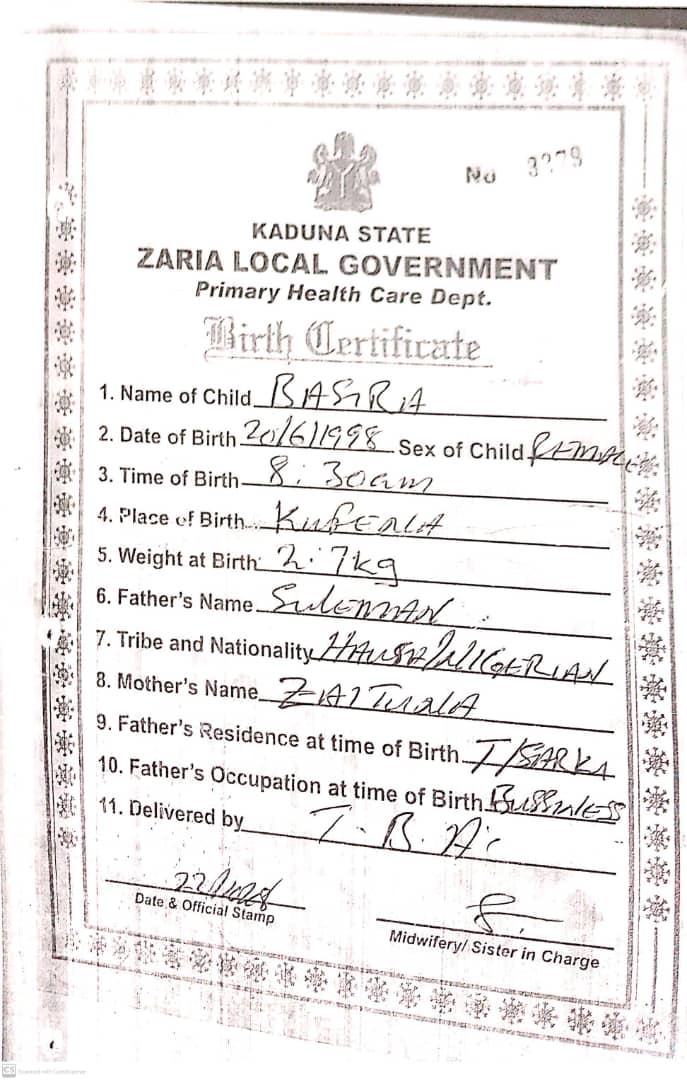 No 3279
KADUNA STATE
ZARIA LOCAL GOVERNMENT
Primary Health Care Dept.
Birth Certificate
1. Name of Child BASIRA
2. Date of Birth 20/6/1998 Sex of Child FEMALE
3. Time of Birth 8:30am
4. Place of Birth KUFENA
5. Weight at Birth 2.7kg
6. Father's Name SULEMAN
7. Tribe and Nationality HAUSA/NIGERIAN
8. Mother's Name
9. Father's Residence at time of Birth
10. Father's Occupation at time of Birth
11. Delivered by T.B.A.
Date & Official Stamp
Midwifery/ Sister in Charge
CS Scanned with CamScanner